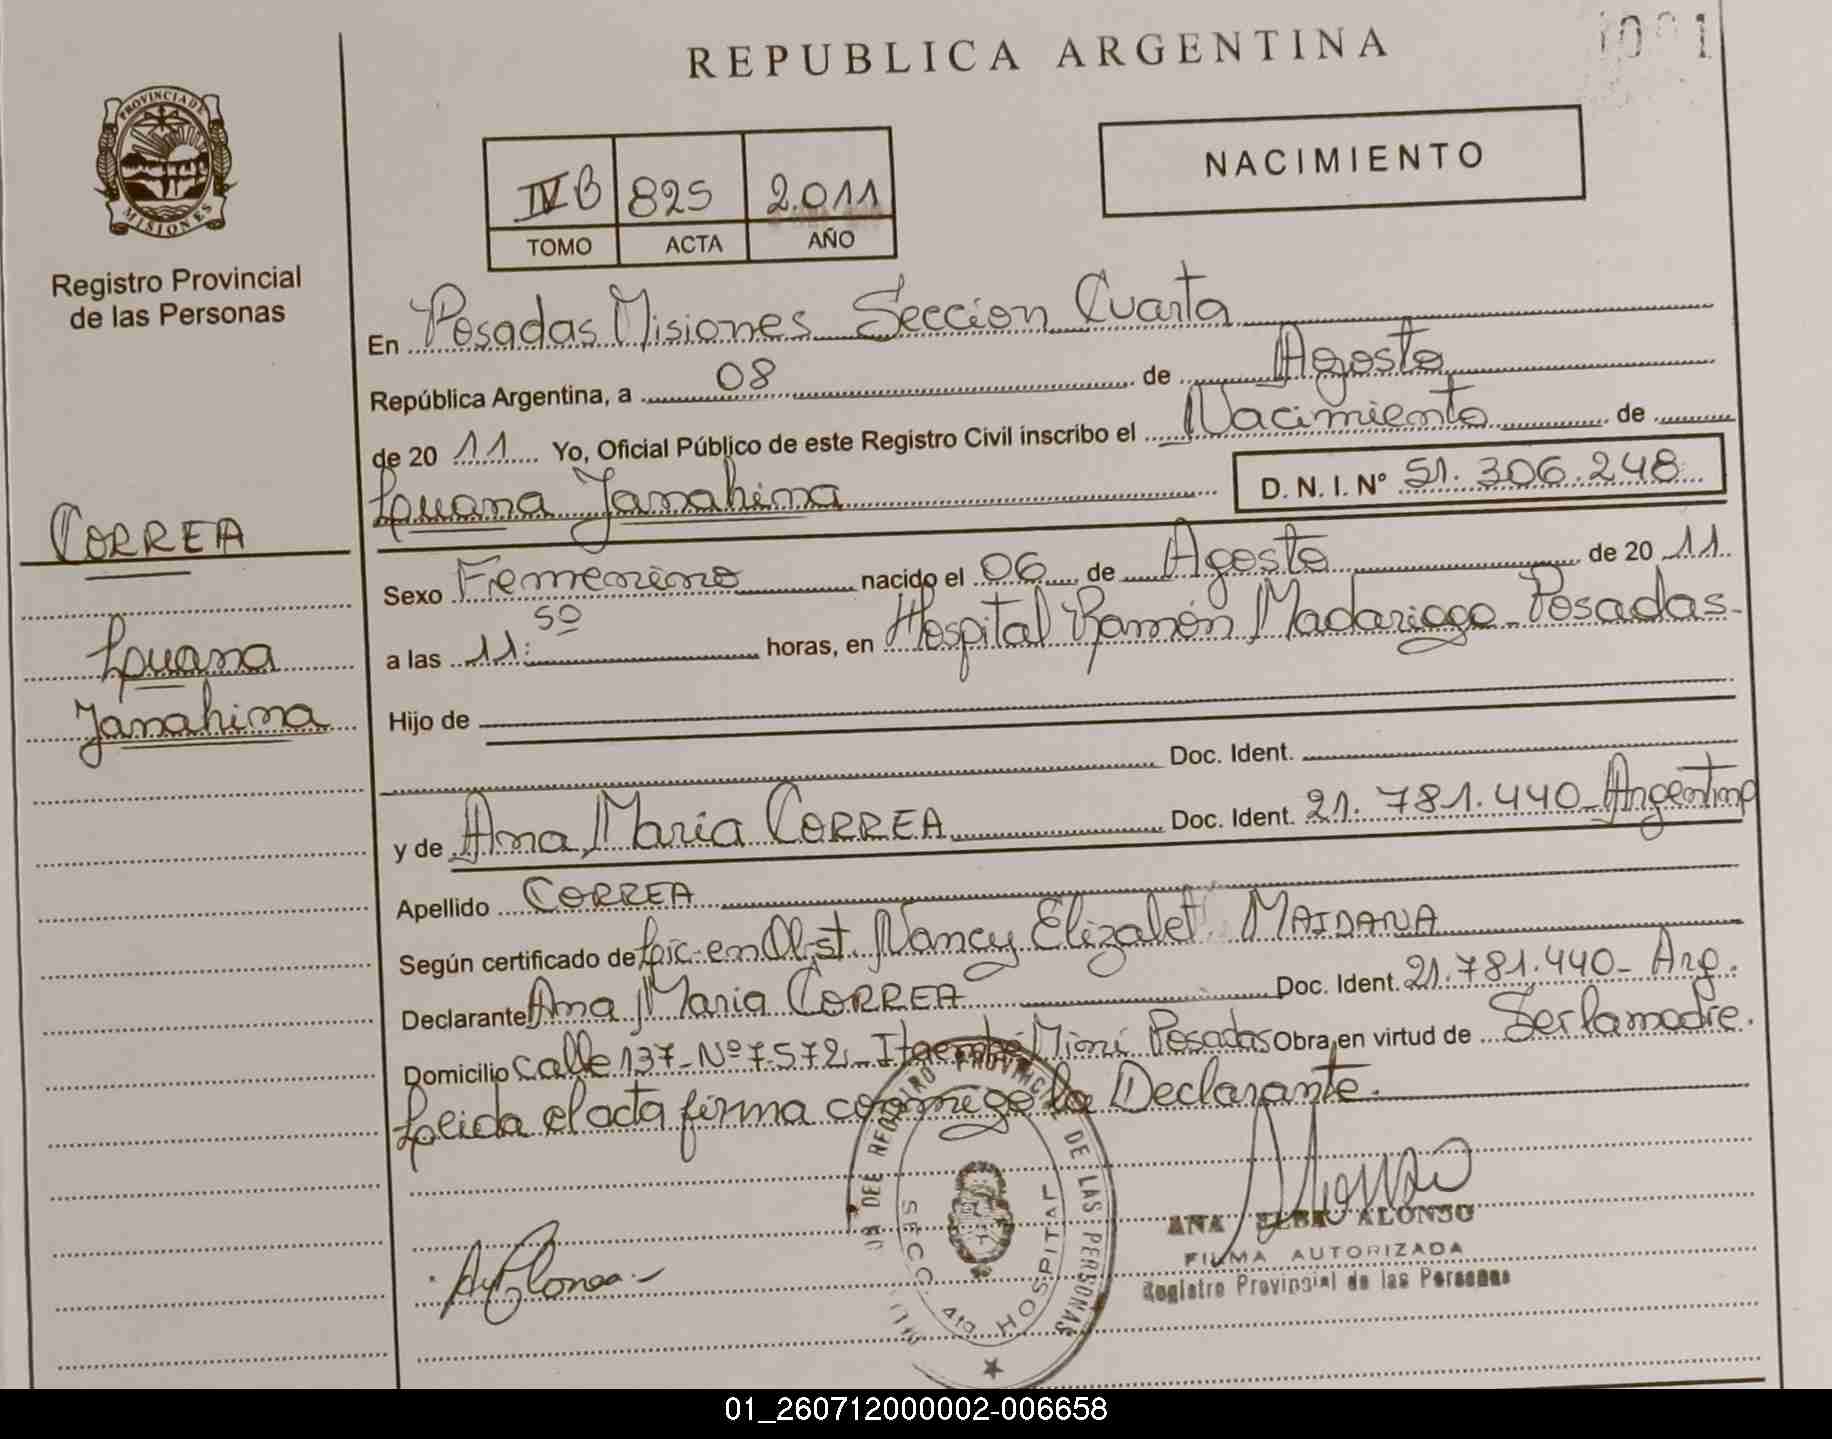 REPUBLICA ARGENTINA
PROVINCIA DE
MISIONES
Registro Provincial
de las Personas
IV B 825 2.011
TOMO ACTA AÑO
NACIMIENTO
En Posadas Misiones Seccion Cuarta
República Argentina, a 08 de Agosto
de 20 11 Yo, Oficial Público de este Registro Civil inscribo el Nacimiento de
Luana Janahina D. N. I. Nº 51.306.248
CORREA
Luana
Janahina
Sexo Femenino nacido el 06 de Agosto de 20 11
a las 11:50 horas, en Hospital Ramón Madariaga - Posadas-
Hijo de
Doc. Ident.
y de Ana Maria CORREA Doc. Ident. 21.781.440- Argentina
Apellido CORREA
Según certificado de Lic. en Obst. Nancy Elizabet MAIDANA
Declarante Ana Maria CORREA Doc. Ident. 21.781.440- Arg.
Domicilio calle 137- Nº 7.572- Itaembé Miní Posadas Obra en virtud de Ser la madre.
Leida el acta firma conmigo la Declarante.
REGISTRO PROVINCIAL DE LAS PERSONAS
SECC. 4ta HOSPITAL
ANA ELBA ALONSO
FIRMA AUTORIZADA
Registro Provincial de las Personas
01_260712000002-006658